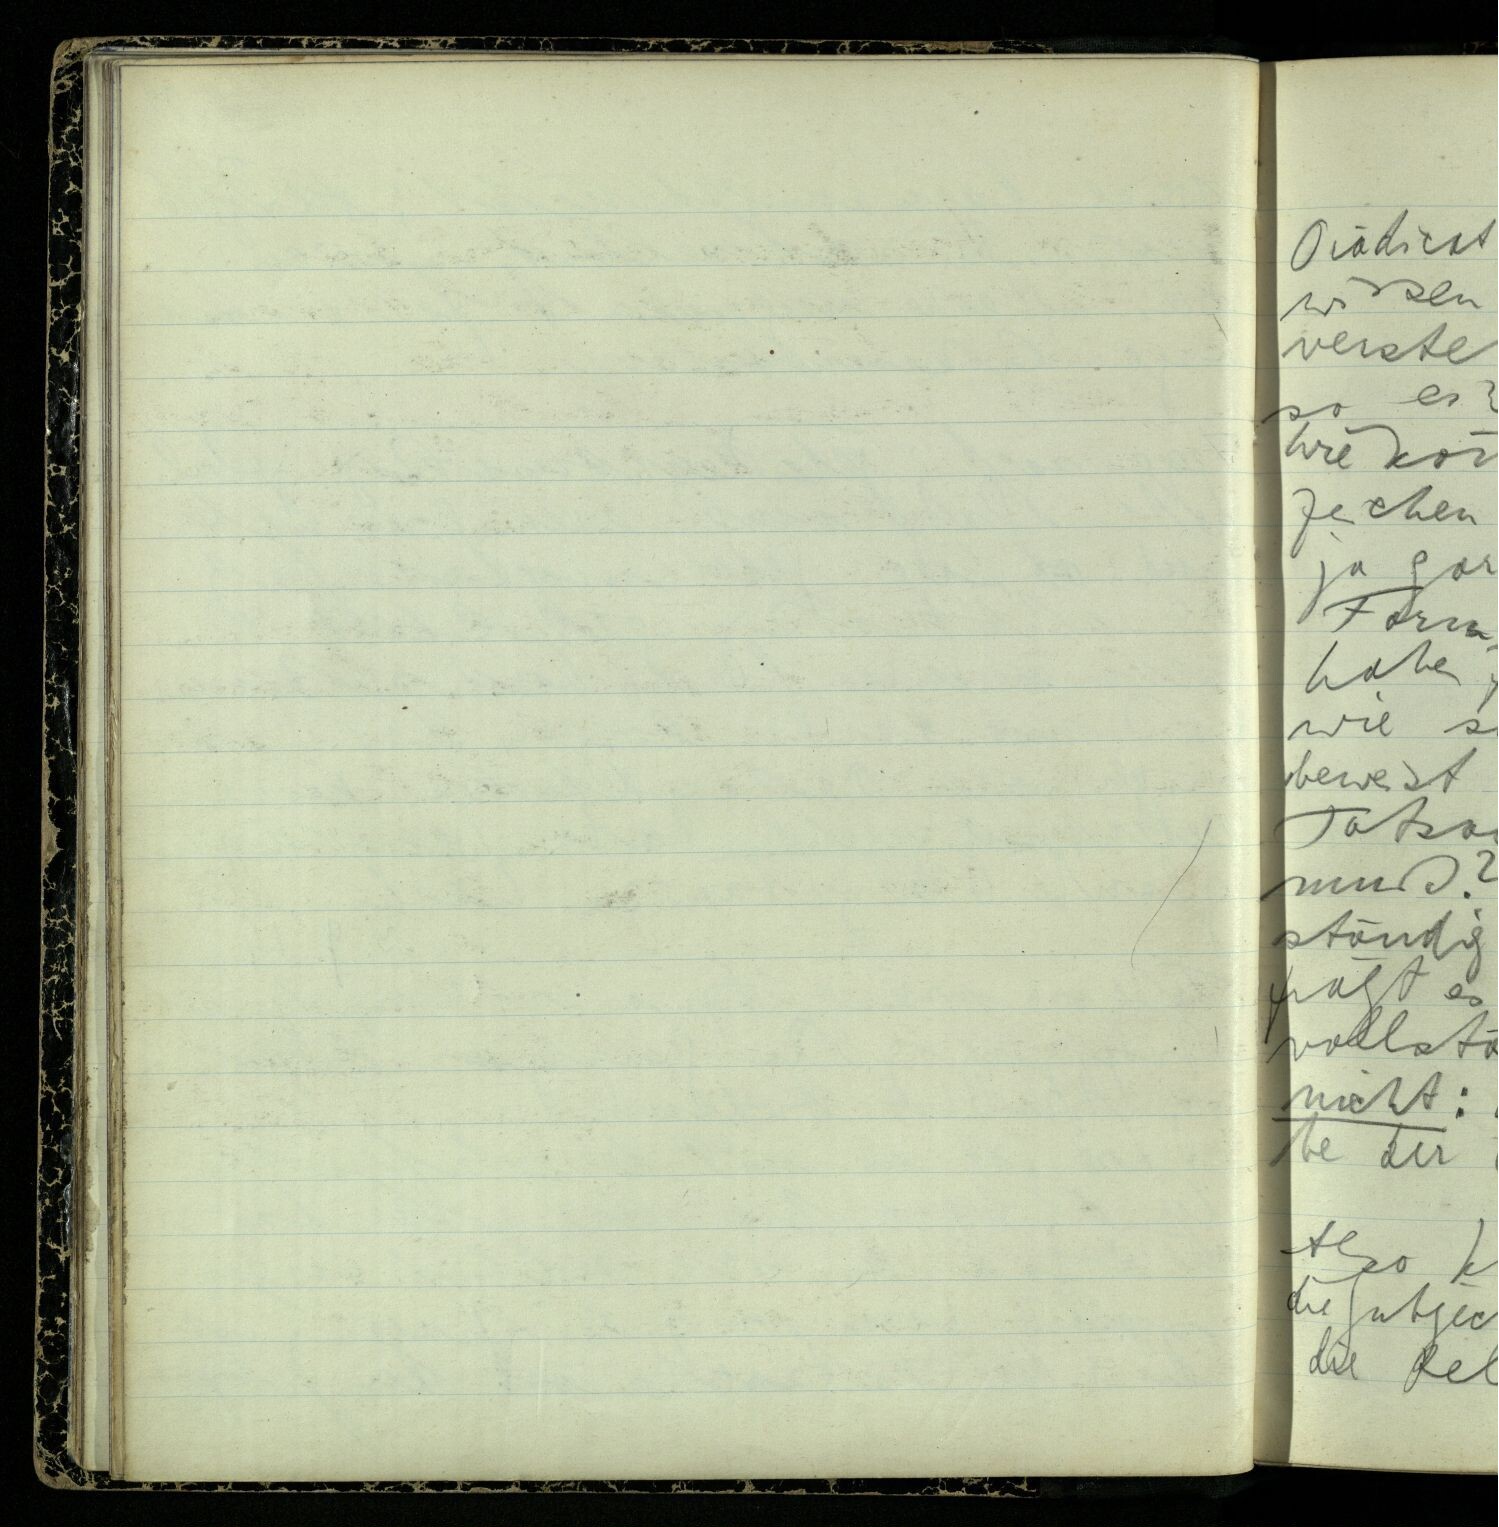 Prädicat
wissen
verste
so es?
Wie kön
Zeichen
ja gar
Form,
haben,
wie s
beweist
Tatsac
muss?
ständig
frägt es
vollstä
nicht:
be der
Also k
die Subjec
die Rel